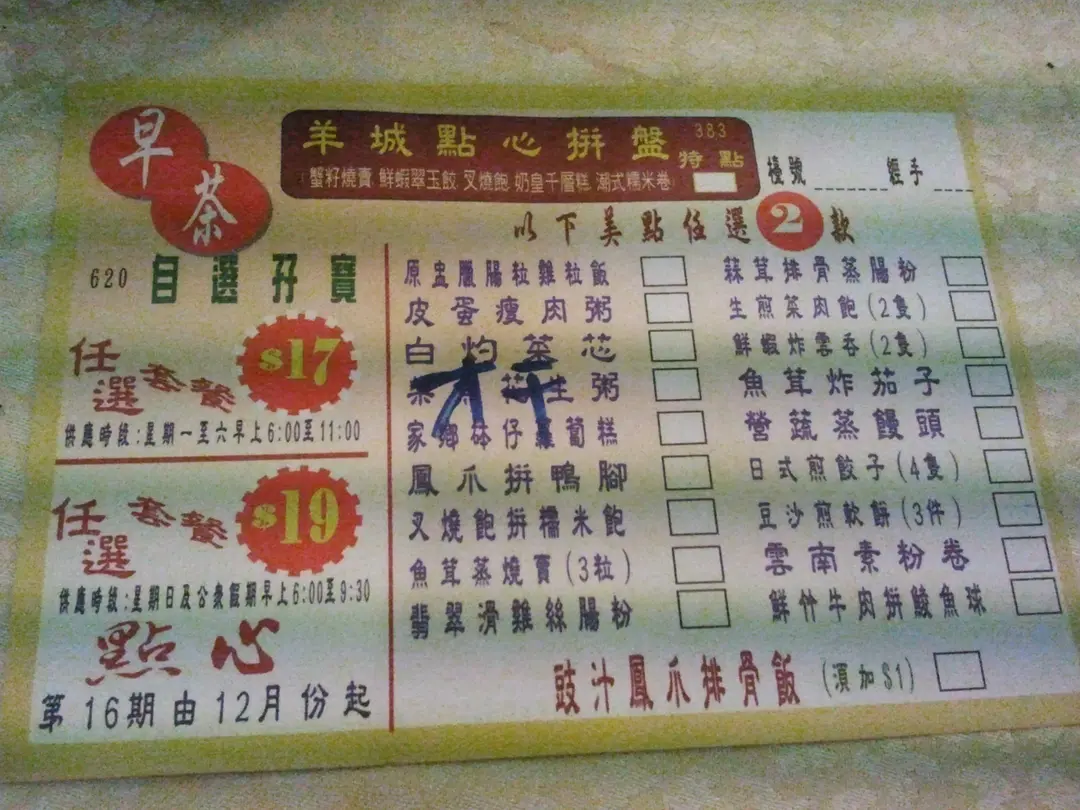 早茶
羊城點心拼盤 383 特點
蟹籽燒賣.鮮蝦翠玉餃.叉燒飽.奶皇千層糕.潮式糯米卷
檯號______經手____
以下美點任選2款
620 自選孖寶
任選套餐 $17
供應時段:星期一至六早上6:00至11:00
任選套餐 $19
供應時段:星期日及公衆假期早上6:00至9:30
點心
第16期由12月份起
原盅臘腸粒雞粒飯
皮蛋瘦肉粥
白灼菜芯
柴 花生粥
家鄉砵仔蘿蔔糕
鳳爪拼鴨腳
叉燒飽拼糯米飽
魚茸蒸燒賣(3粒)
翡翠滑雞絲腸粉
蒜茸排骨蒸腸粉
生煎菜肉飽(2隻)
鮮蝦炸雲吞(2隻)
魚茸炸茄子
營蔬蒸饅頭
日式煎餃子(4隻)
豆沙煎軟餅(3件)
雲南素粉卷
鮮竹牛肉拼鯪魚球
豉汁鳳爪排骨飯(須加$1)